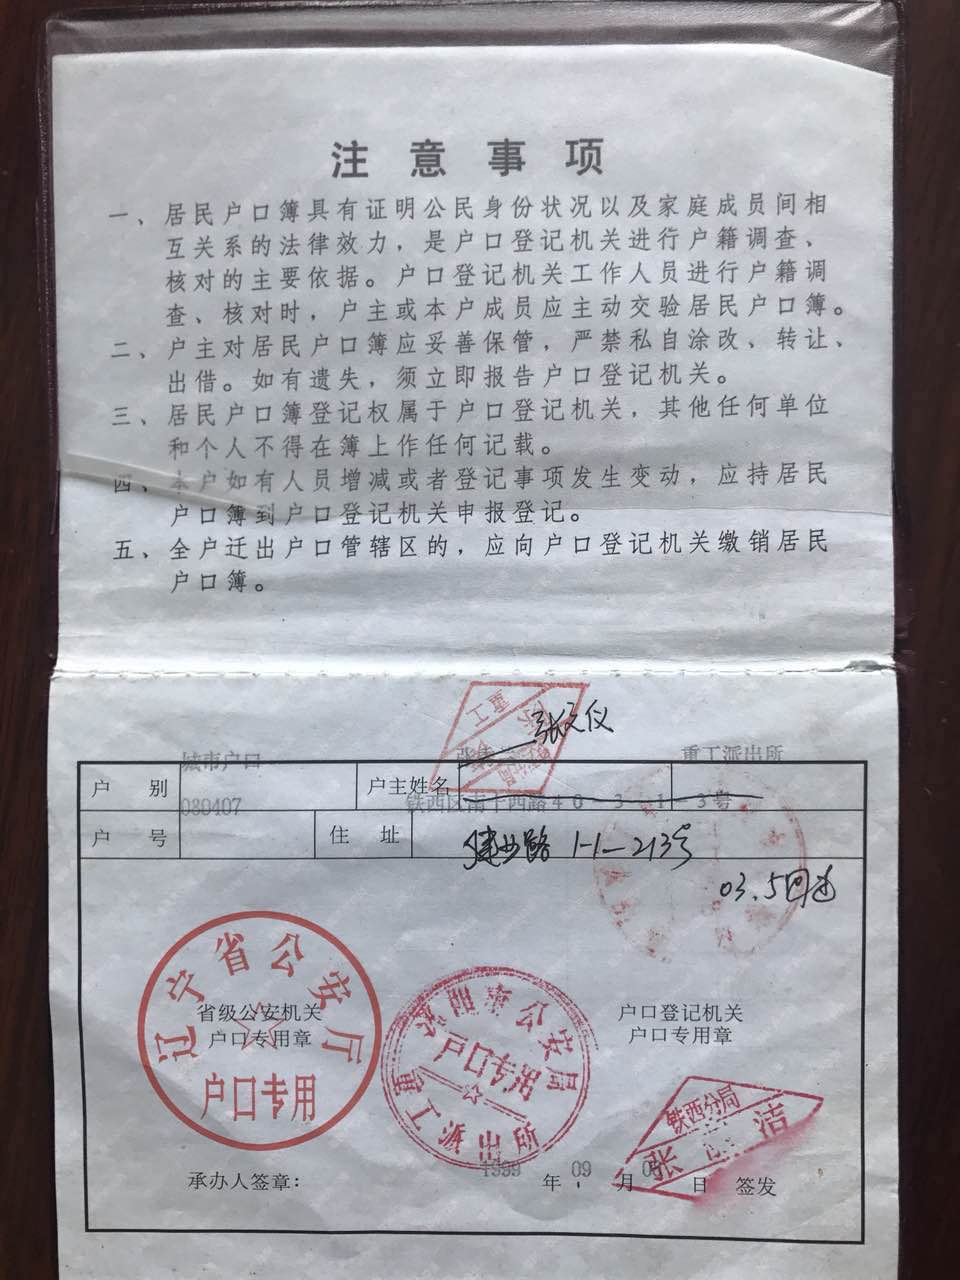 注意事项
一、居民户口簿具有证明公民身份状况以及家庭成员间相
互关系的法律效力，是户口登记机关进行户籍调查、
核对的主要依据。户口登记机关工作人员进行户籍调
查、核对时，户主或本户成员应主动交验居民户口簿。
二、户主对居民户口簿应妥善保管，严禁私自涂改、转让、
出借。如有遗失，须立即报告户口登记机关。
三、居民户口簿登记权属于户口登记机关，其他任何单位
和个人不得在簿上作任何记载。
四、本户如有人员增减或者登记事项发生变动，应持居民
户口簿到户口登记机关申报登记。
五、全户迁出户口管辖区的，应向户口登记机关缴销居民
户口簿。
重工
张文仪
城市户口 重工派出所
户 别 户主姓名
080407 铁西区南十西路40-3-1-3号
户 号 住 址 建业路 1-1-213号
03.5
辽宁省公安厅
省级公安机关
户口专用章
户口专用
沈阳市公安局
户口专用
重工派出所
户口登记机关
户口专用章
铁西分局
张 洁
承办人签章： 1999 年 09 月 日 签发